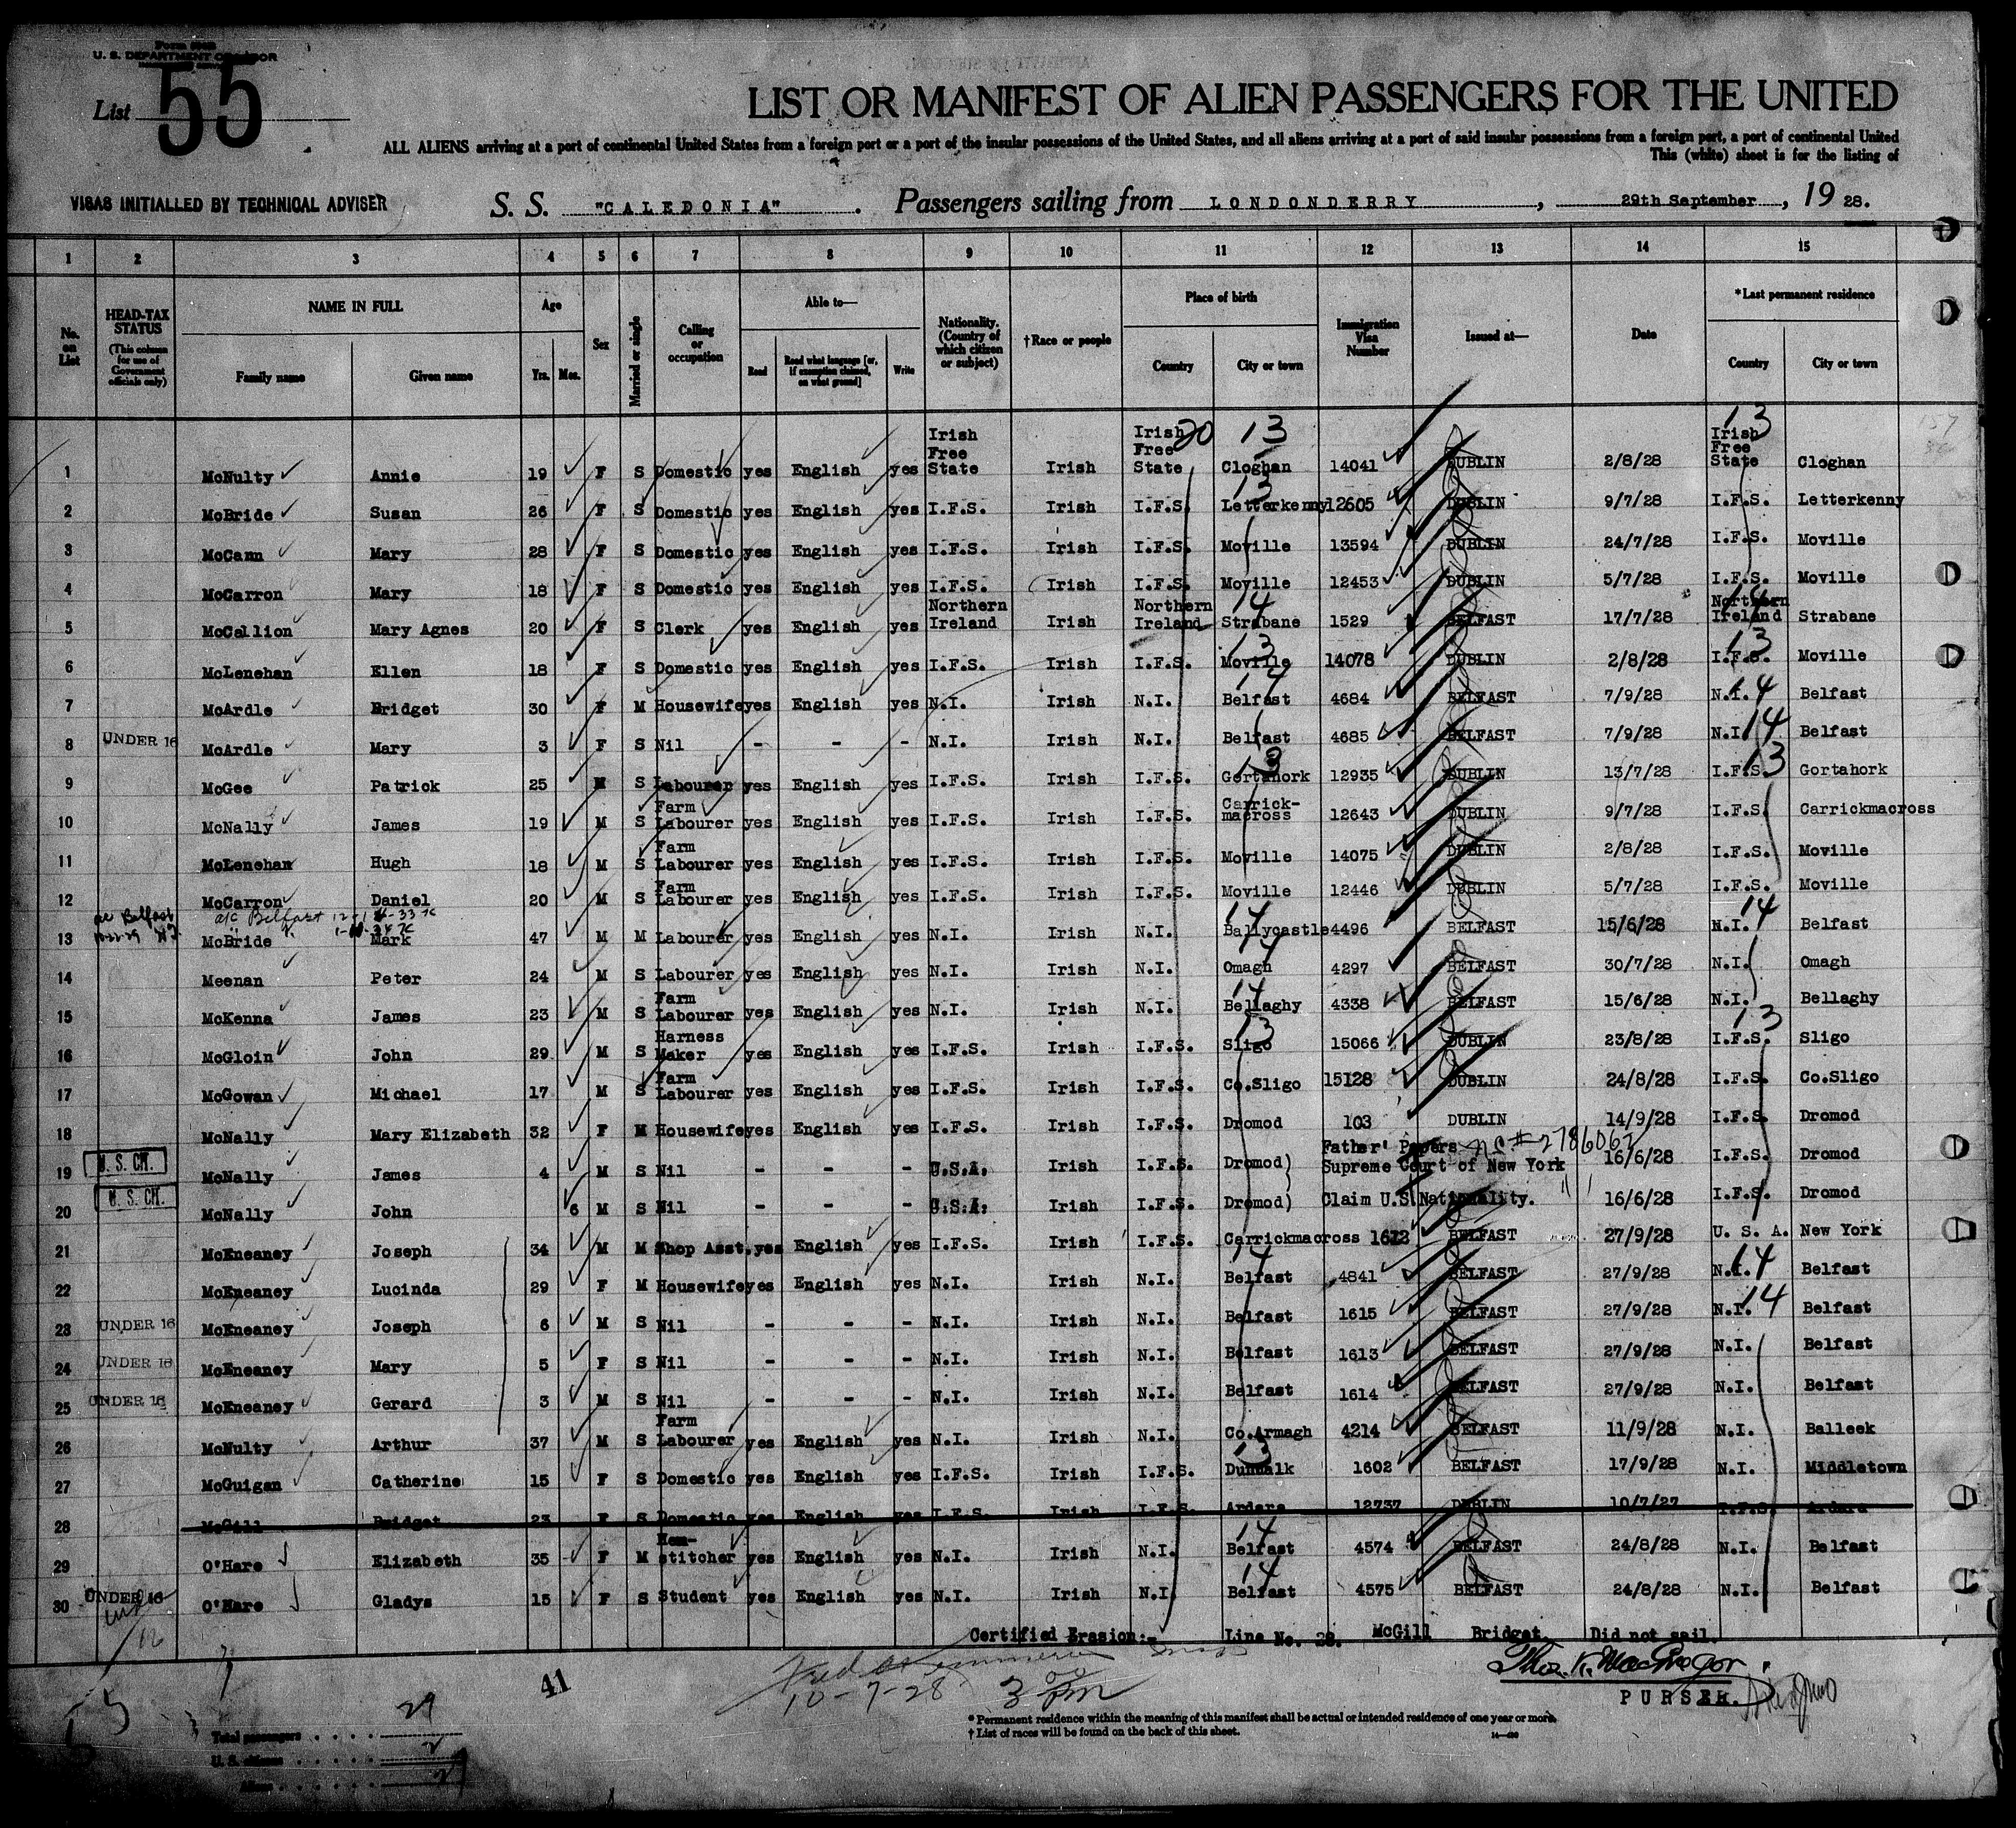 U. S. DEPARTMENT OF LABOR
List 55
LIST OR MANIFEST OF ALIEN PASSENGERS FOR THE UNITED
ALL ALIENS arriving at a port of continental United States from a foreign port or a port of the insular possessions of the United States, and all aliens arriving at a port of said insular possessions from a foreign port, a port of continental United
This (white) sheet is for the listing of
VISAS INITIALLED BY TECHNICAL ADVISER
S. S. "CALEDONIA". Passengers sailing from LONDONDERRY, 29th September, 1928.
1 2 3 4 5 6 7 8 9 10 11 12 13 14 15
No. on List
HEAD-TAX STATUS (This column for use of Government officials only)
NAME IN FULL Family name Given name
Age Yrs. Mos.
Sex
Married or single
Calling or occupation
Able to— Read Read what language [or, if exemption claimed, on what ground] Write
Nationality. (Country of which citizen or subject)
†Race or people
Place of birth Country City or town
Immigration Visa Number
Issued at—
Date
*Last permanent residence Country City or town
1 McNulty Annie 19 F S Domestic yes English yes Irish Free State Irish Irish Free State Cloghan 14041 DUBLIN 2/8/28 Irish Free State Cloghan
2 McBride Susan 26 F S Domestic yes English yes I.F.S. Irish I.F.S. Letterkenny 12605 DUBLIN 9/7/28 I.F.S. Letterkenny
3 McCann Mary 28 F S Domestic yes English yes I.F.S. Irish I.F.S. Moville 13594 DUBLIN 24/7/28 I.F.S. Moville
4 McCarron Mary 18 F S Domestic yes English yes I.F.S. Irish I.F.S. Moville 12453 DUBLIN 5/7/28 I.F.S. Moville
5 McCallion Mary Agnes 20 F S Clerk yes English yes Northern Ireland Irish Northern Ireland Strabane 1529 BELFAST 17/7/28 Northern Ireland Strabane
6 McLenehan Ellen 18 F S Domestic yes English yes I.F.S. Irish I.F.S. Moville 14078 DUBLIN 2/8/28 I.F.S. Moville
7 McArdle Bridget 30 F M Housewife yes English yes N.I. Irish N.I. Belfast 4684 BELFAST 7/9/28 N.I. Belfast
8 UNDER 16 McArdle Mary 3 F S Nil - - - N.I. Irish N.I. Belfast 4685 BELFAST 7/9/28 N.I. Belfast
9 McGee Patrick 25 M S Labourer yes English yes I.F.S. Irish I.F.S. Gortahork 12935 DUBLIN 13/7/28 I.F.S. Gortahork
10 McNally James 19 M S Farm Labourer yes English yes I.F.S. Irish I.F.S. Carrick-macross 12643 DUBLIN 9/7/28 I.F.S. Carrickmacross
11 McLenehan Hugh 18 M S Farm Labourer yes English yes I.F.S. Irish I.F.S. Moville 14075 DUBLIN 2/8/28 I.F.S. Moville
12 McCarron Daniel 20 M S Farm Labourer yes English yes I.F.S. Irish I.F.S. Moville 12446 DUBLIN 5/7/28 I.F.S. Moville
13 McBride Mark 47 M M Labourer yes English yes N.I. Irish N.I. Ballycastle 4496 BELFAST 15/6/28 N.I. Belfast
14 Meenan Peter 24 M S Labourer yes English yes N.I. Irish N.I. Omagh 4297 BELFAST 30/7/28 N.I. Omagh
15 McKenna James 23 M S Farm Labourer yes English yes N.I. Irish N.I. Bellaghy 4338 BELFAST 15/6/28 N.I. Bellaghy
16 McGloin John 29 M S Harness Maker yes English yes I.F.S. Irish I.F.S. Sligo 15066 DUBLIN 23/8/28 I.F.S. Sligo
17 McGowan Michael 17 M S Farm Labourer yes English yes I.F.S. Irish I.F.S. Co.Sligo 15128 DUBLIN 24/8/28 I.F.S. Co.Sligo
18 McNally Mary Elizabeth 32 F M Housewife yes English yes I.F.S. Irish I.F.S. Dromod 103 DUBLIN 14/9/28 I.F.S. Dromod
19 U. S. CIT. McNally James 4 M S Nil - - - U.S.A. Irish I.F.S. Dromod) Father' Papers Supreme Court of New York 16/6/28 I.F.S. Dromod
20 U. S. CIT. McNally John 6 M S Nil - - - U.S.A. Irish I.F.S. Dromod) Claim U.S. Nationality. 16/6/28 I.F.S. Dromod
21 McEneaney Joseph 34 M M Shop Asst. yes English yes I.F.S. Irish I.F.S. Carrickmacross 1612 BELFAST 27/9/28 U. S. A. New York
22 McEneaney Lucinda 29 F M Housewife yes English yes N.I. Irish N.I. Belfast 4841 BELFAST 27/9/28 N.I. Belfast
23 UNDER 16 McEneaney Joseph 6 M S Nil - - - N.I. Irish N.I. Belfast 1615 BELFAST 27/9/28 N.I. Belfast
24 UNDER 16 McEneaney Mary 5 F S Nil - - - N.I. Irish N.I. Belfast 1613 BELFAST 27/9/28 N.I. Belfast
25 UNDER 16 McEneaney Gerard 3 M S Nil - - - N.I. Irish N.I. Belfast 1614 BELFAST 27/9/28 N.I. Belfast
26 McNulty Arthur 37 M S Farm Labourer yes English yes N.I. Irish N.I. Co.Armagh 4214 BELFAST 11/9/28 N.I. Balleek
27 McGuigan Catherine 15 F S Domestic yes English yes I.F.S. Irish I.F.S. Dundalk 1602 BELFAST 17/9/28 N.I. Middletown
28 McGill Bridget 23 F S Domestic yes English yes I.F.S. Irish I.F.S. Ardara 12737 DUBLIN 10/7/27 I.F.S. Ardara
29 O'Hare Elizabeth 35 F M Hem-stitcher yes English yes N.I. Irish N.I. Belfast 4574 BELFAST 24/8/28 N.I. Belfast
30 UNDER 16 O'Hare Gladys 15 F S Student yes English yes N.I. Irish N.I. Belfast 4575 BELFAST 24/8/28 N.I. Belfast
Certified Erasion:- Line No. 28. McGill Bridget. Did not sail.
Thos. K. MacGregor.
PURSER.
41
10-7-28 3 00 PM
* Permanent residence within the meaning of this manifest shall be actual or intended residence of one year or more.
† List of races will be found on the back of this sheet.
Total passengers 29
U. S. citizens 2
Aliens